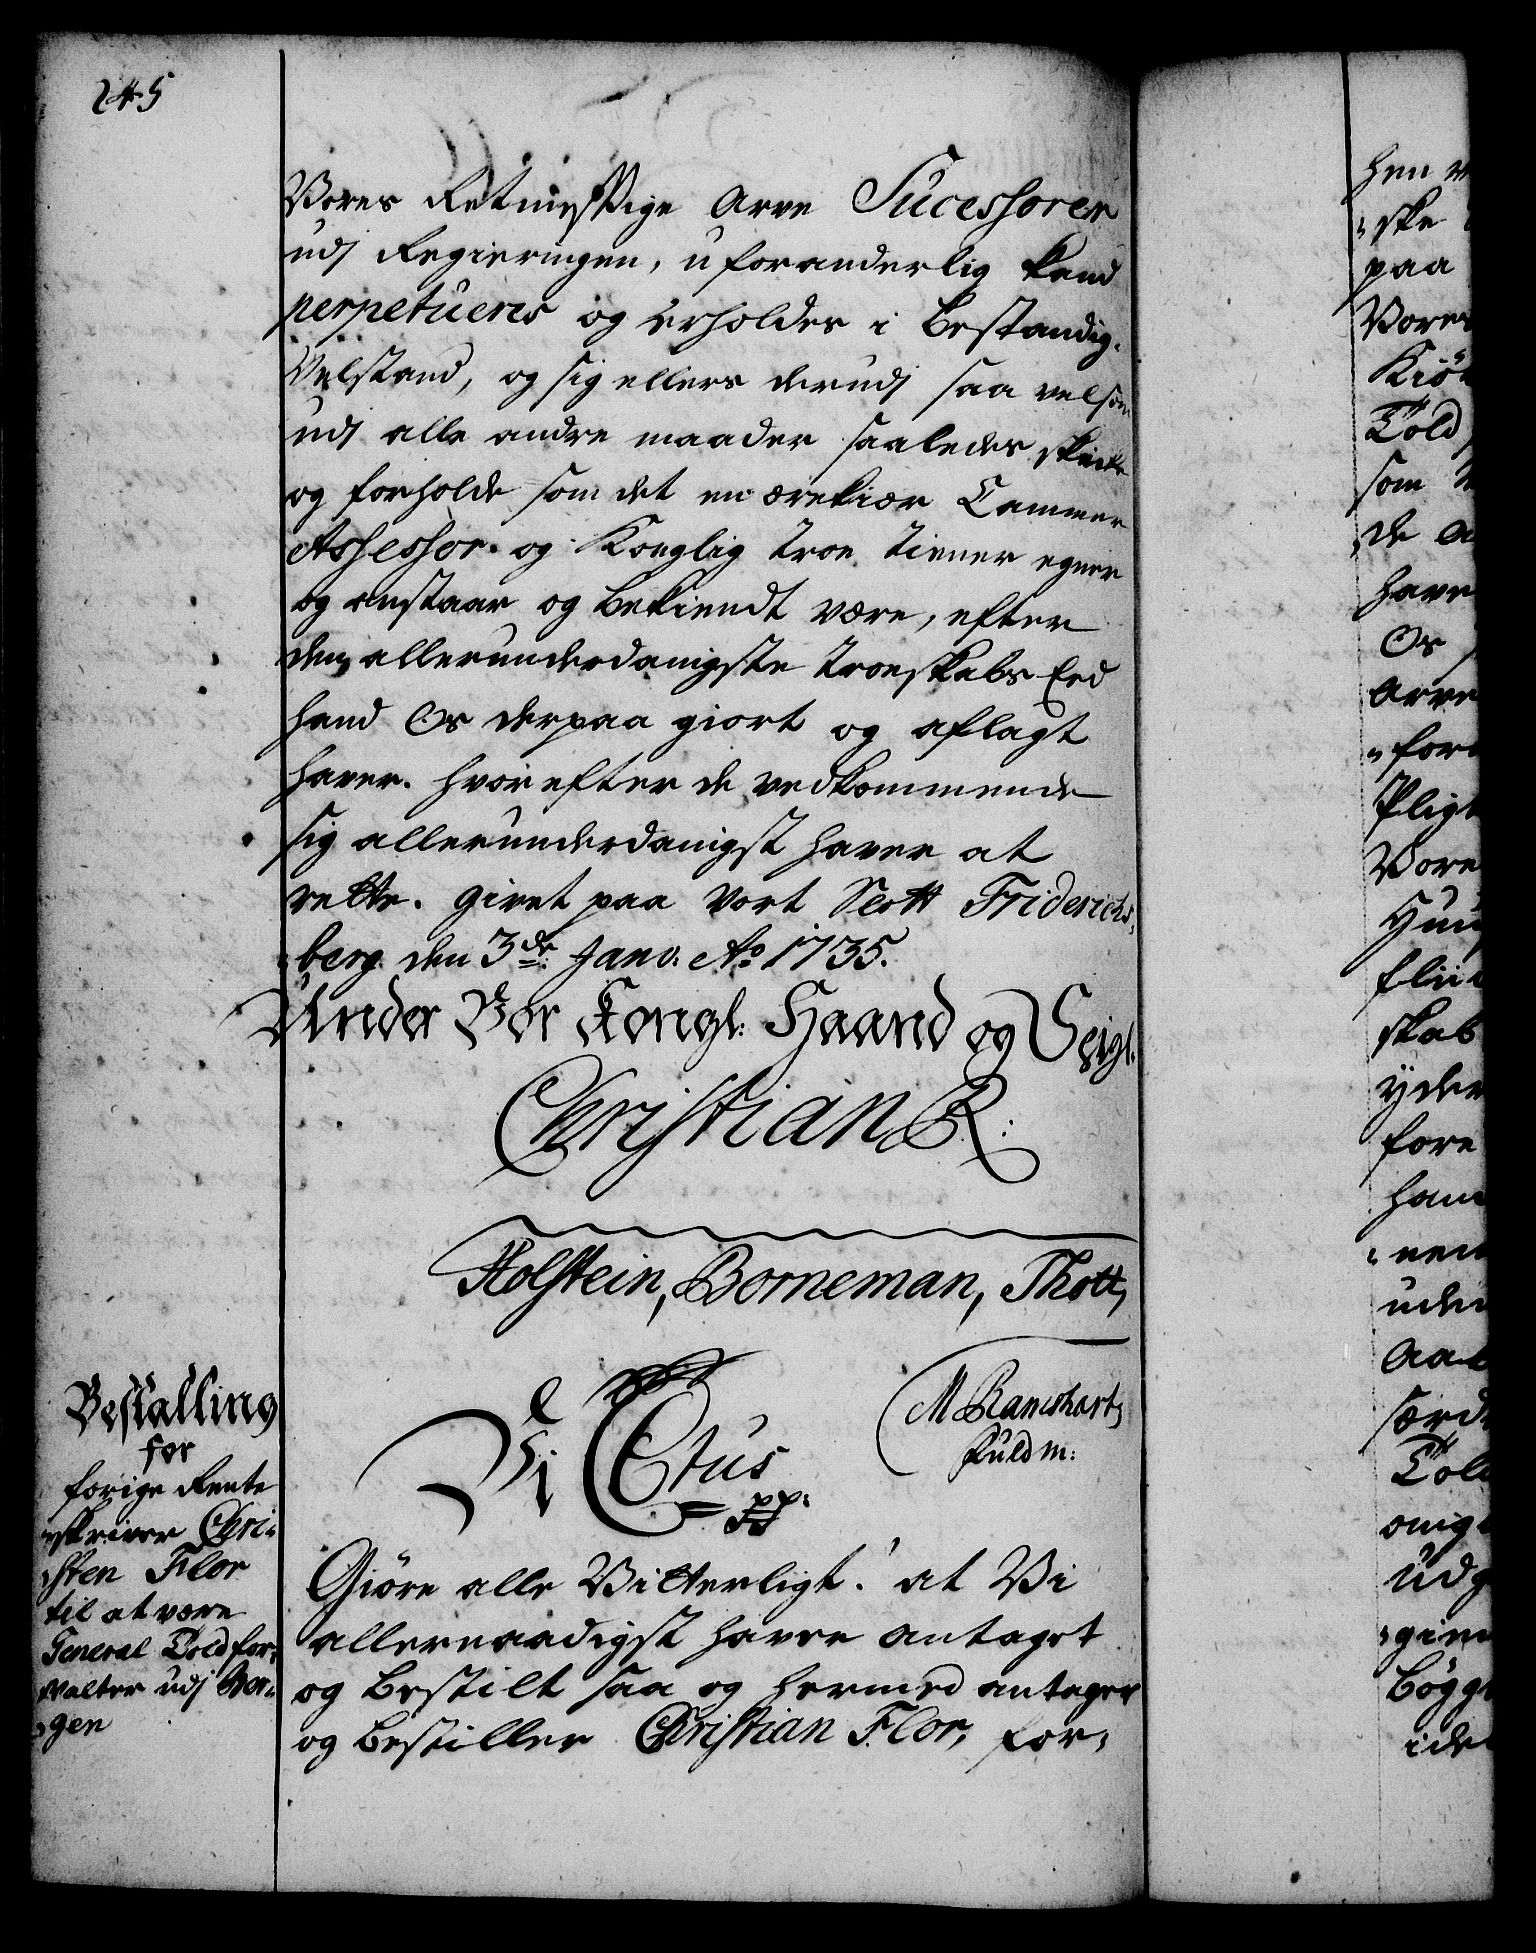 245
Vores Retmessige Arve Sucessorer
udj Regieringen, uforanderlig kand
perpetueres og erholdes i bestandig
Velstand, og sig ellers derudj saa velsom
udj alle andre maader saaledes skicke
og forholde som det en ærekiær Cammer
Assessor og Konglig troe tiener egner
og anstaar og bekiendt være, efter
den allerunderdanigste troeskabs Eed
hand Os derpaa giort og aflagt
haver. hvorefter de vedkommende
sig allerunderdanigst haver at
rette. Givet paa Vort Slott Friderichs,
berg den 3de Janv: Ao 1735.
Under Vor Kongl: Haand og Seigl:
Christian R:
Holstein, Borneman, Thott,
M
Fuldm:
Bestalling
for
forige Rente
skriver Chri-
sten Flor
til at være
General Toldfor,
valter udj Nor,
gen
Vi C6tus
pp:
Giöre alle Vitterligt! at Vi
allernaadigst haver antaget
og bestilt saa og hermed antager
og bestiller Christian Flor, for,
hen
ske
paa
Vores
Kiö
Told
som
de
have
Os
Arve
for
Pligt
Vore
flii
skab
yder
fore
ham
uden
særd
Told
udg
bögg
ide